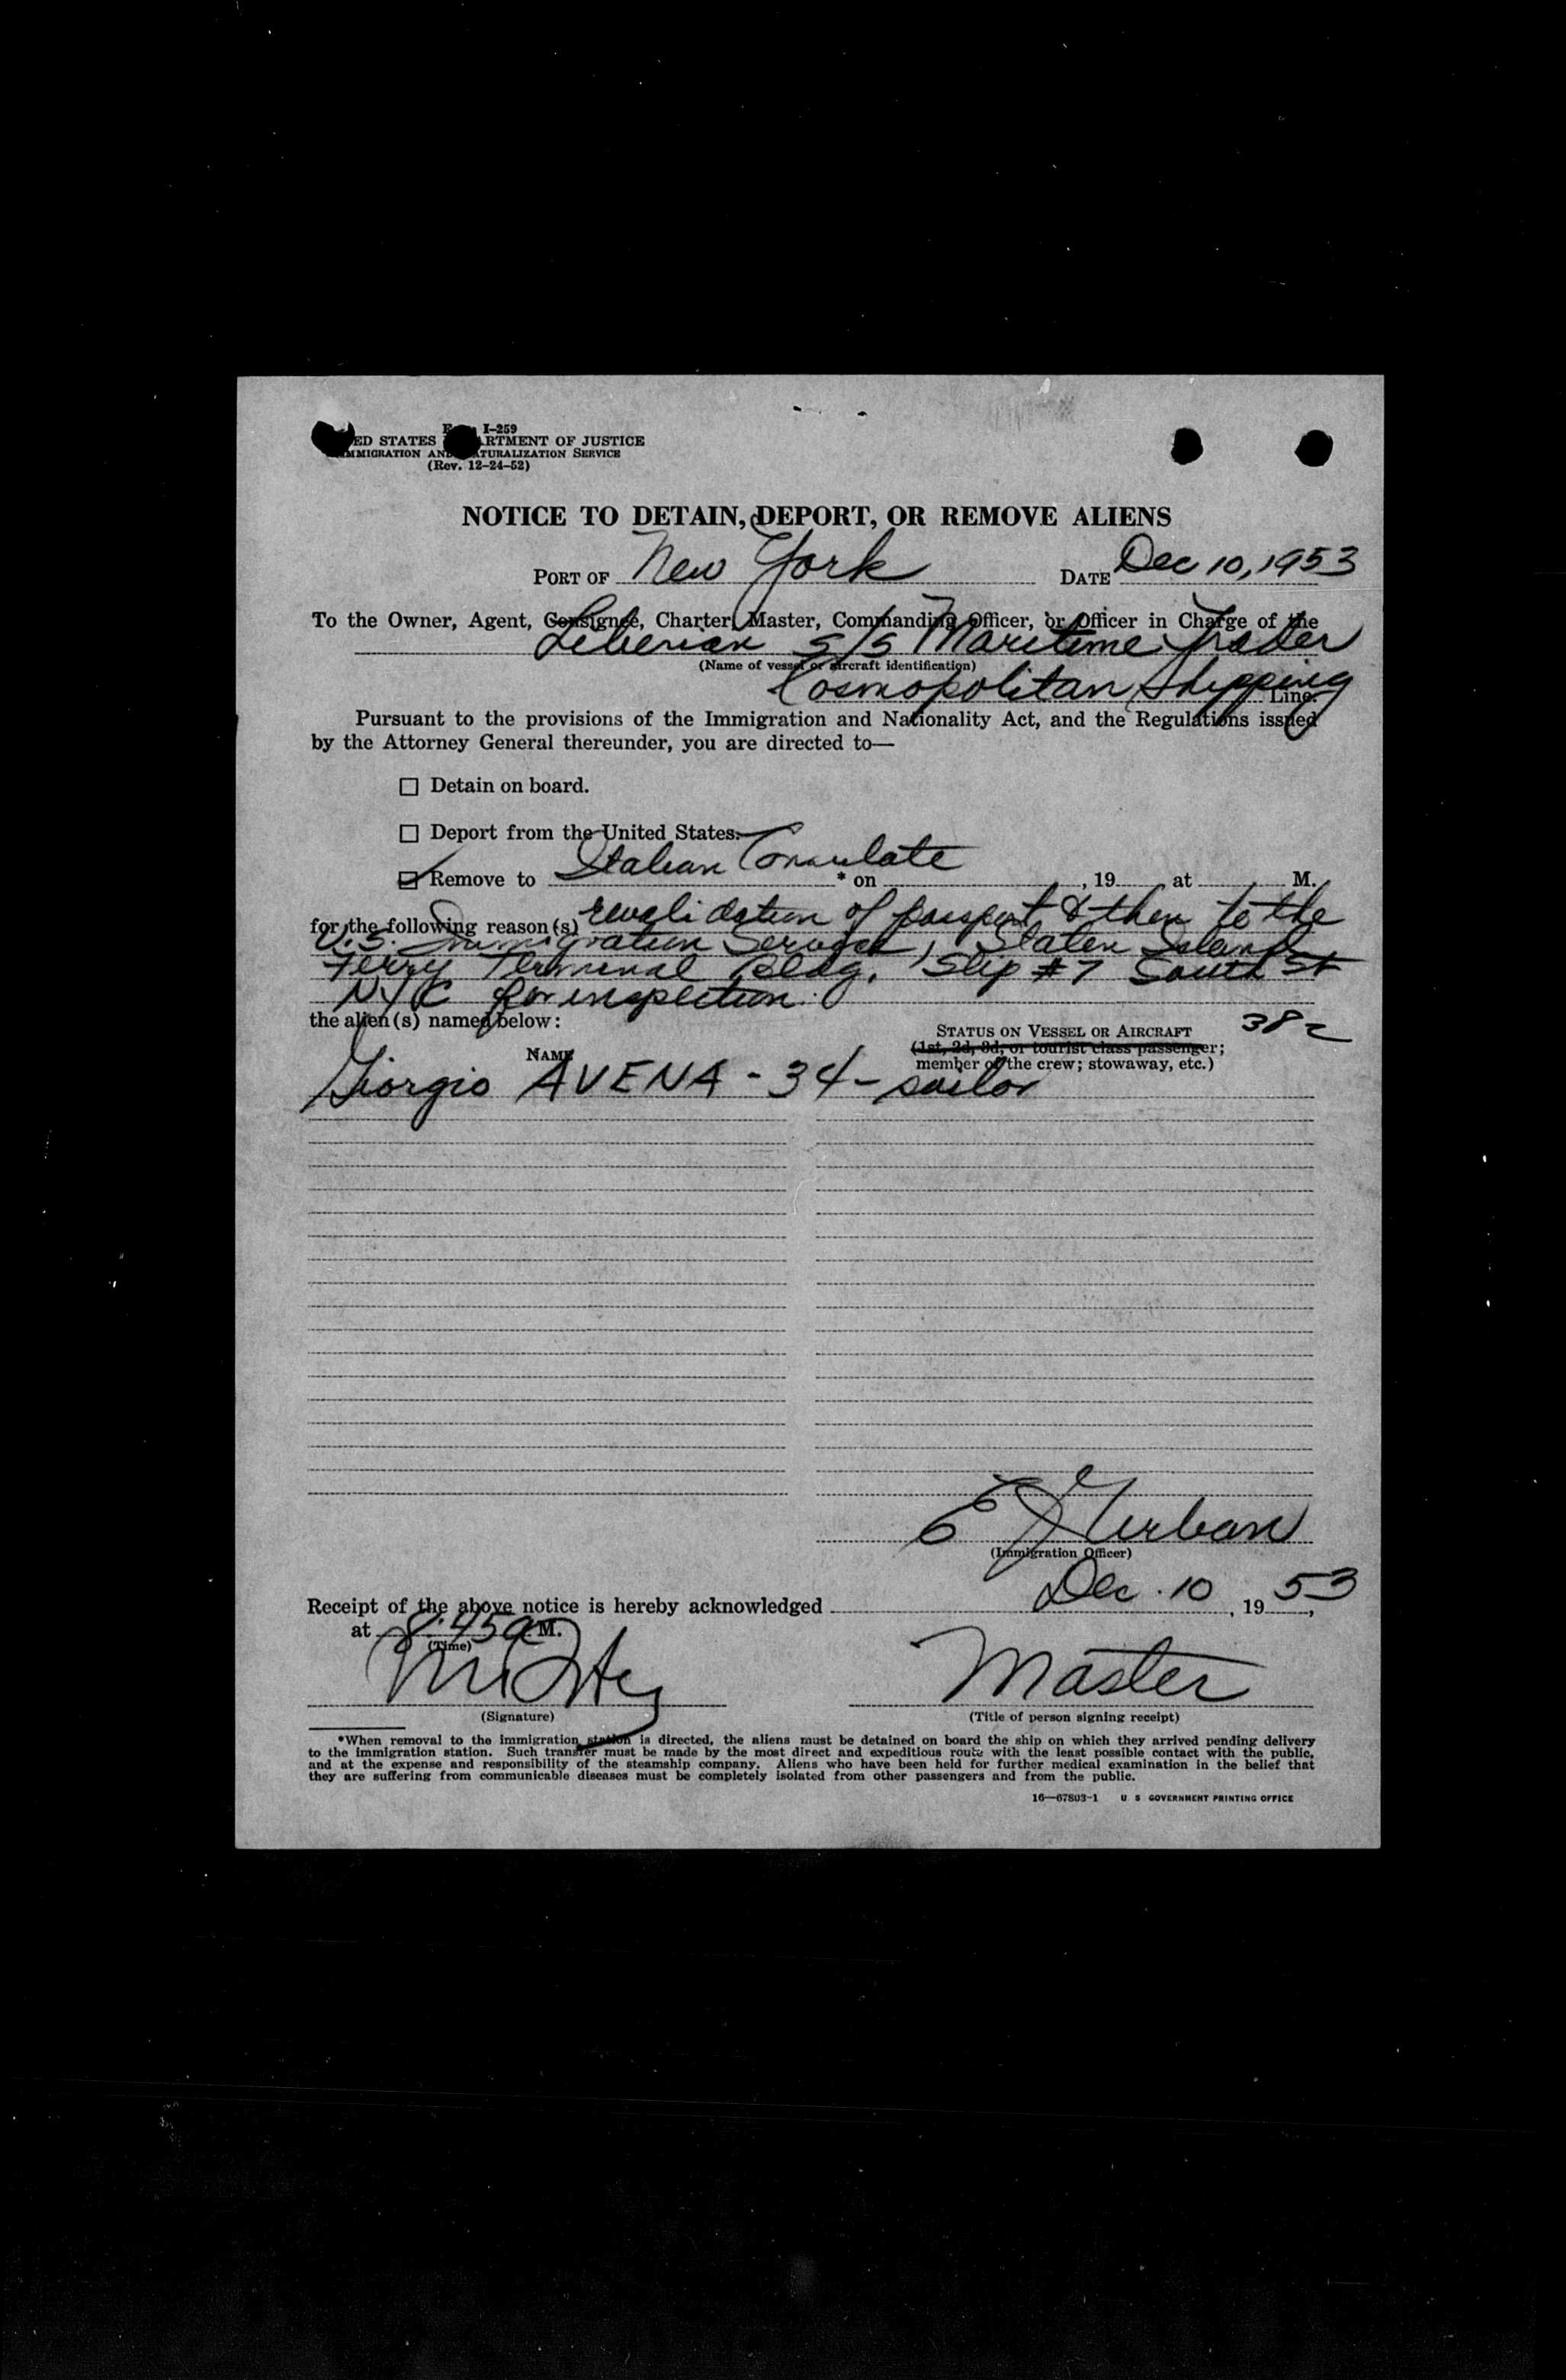 I-259
ED STATES ARTMENT OF JUSTICE
MMIGRATION AND NATURALIZATION SERVICE
(Rev. 12-24-52)
NOTICE TO DETAIN, DEPORT, OR REMOVE ALIENS
PORT OF New York DATE Dec 10, 1953
To the Owner, Agent, Consignee, Charter, Master, Commanding Officer, or Officer in Charge of the
Liberian S/S Maritime Trader
(Name of vessel or aircraft identification)
Cosmopolitan Shipping Line.
Pursuant to the provisions of the Immigration and Nationality Act, and the Regulations issued
by the Attorney General thereunder, you are directed to—
☐ Detain on board.
☐ Deport from the United States.
☑ Remove to Italian Consulate * on , 19 , at M.
for the following reason(s) revalidation of passport & then to the
U.S. Immigration Service, Staten Island
Ferry Terminal Bldg. Slip #7 South St
NYC for inspection.
the alien(s) named below:
STATUS ON VESSEL OR AIRCRAFT
NAME
(1st, 2d, 3d, or tourist class passenger;
member of the crew; stowaway, etc.)
Giorgio AVENA - 34 - sailor
(Immigration Officer)
Receipt of the above notice is hereby acknowledged Dec. 10, 1953,
at 8:45a M.
(Time)
Master
(Signature) (Title of person signing receipt)
*When removal to the immigration station is directed, the aliens must be detained on board the ship on which they arrived pending delivery
to the immigration station. Such transfer must be made by the most direct and expeditious route with the least possible contact with the public,
and at the expense and responsibility of the steamship company. Aliens who have been held for further medical examination in the belief that
they are suffering from communicable diseases must be completely isolated from other passengers and from the public.
16—67803-1 U S GOVERNMENT PRINTING OFFICE